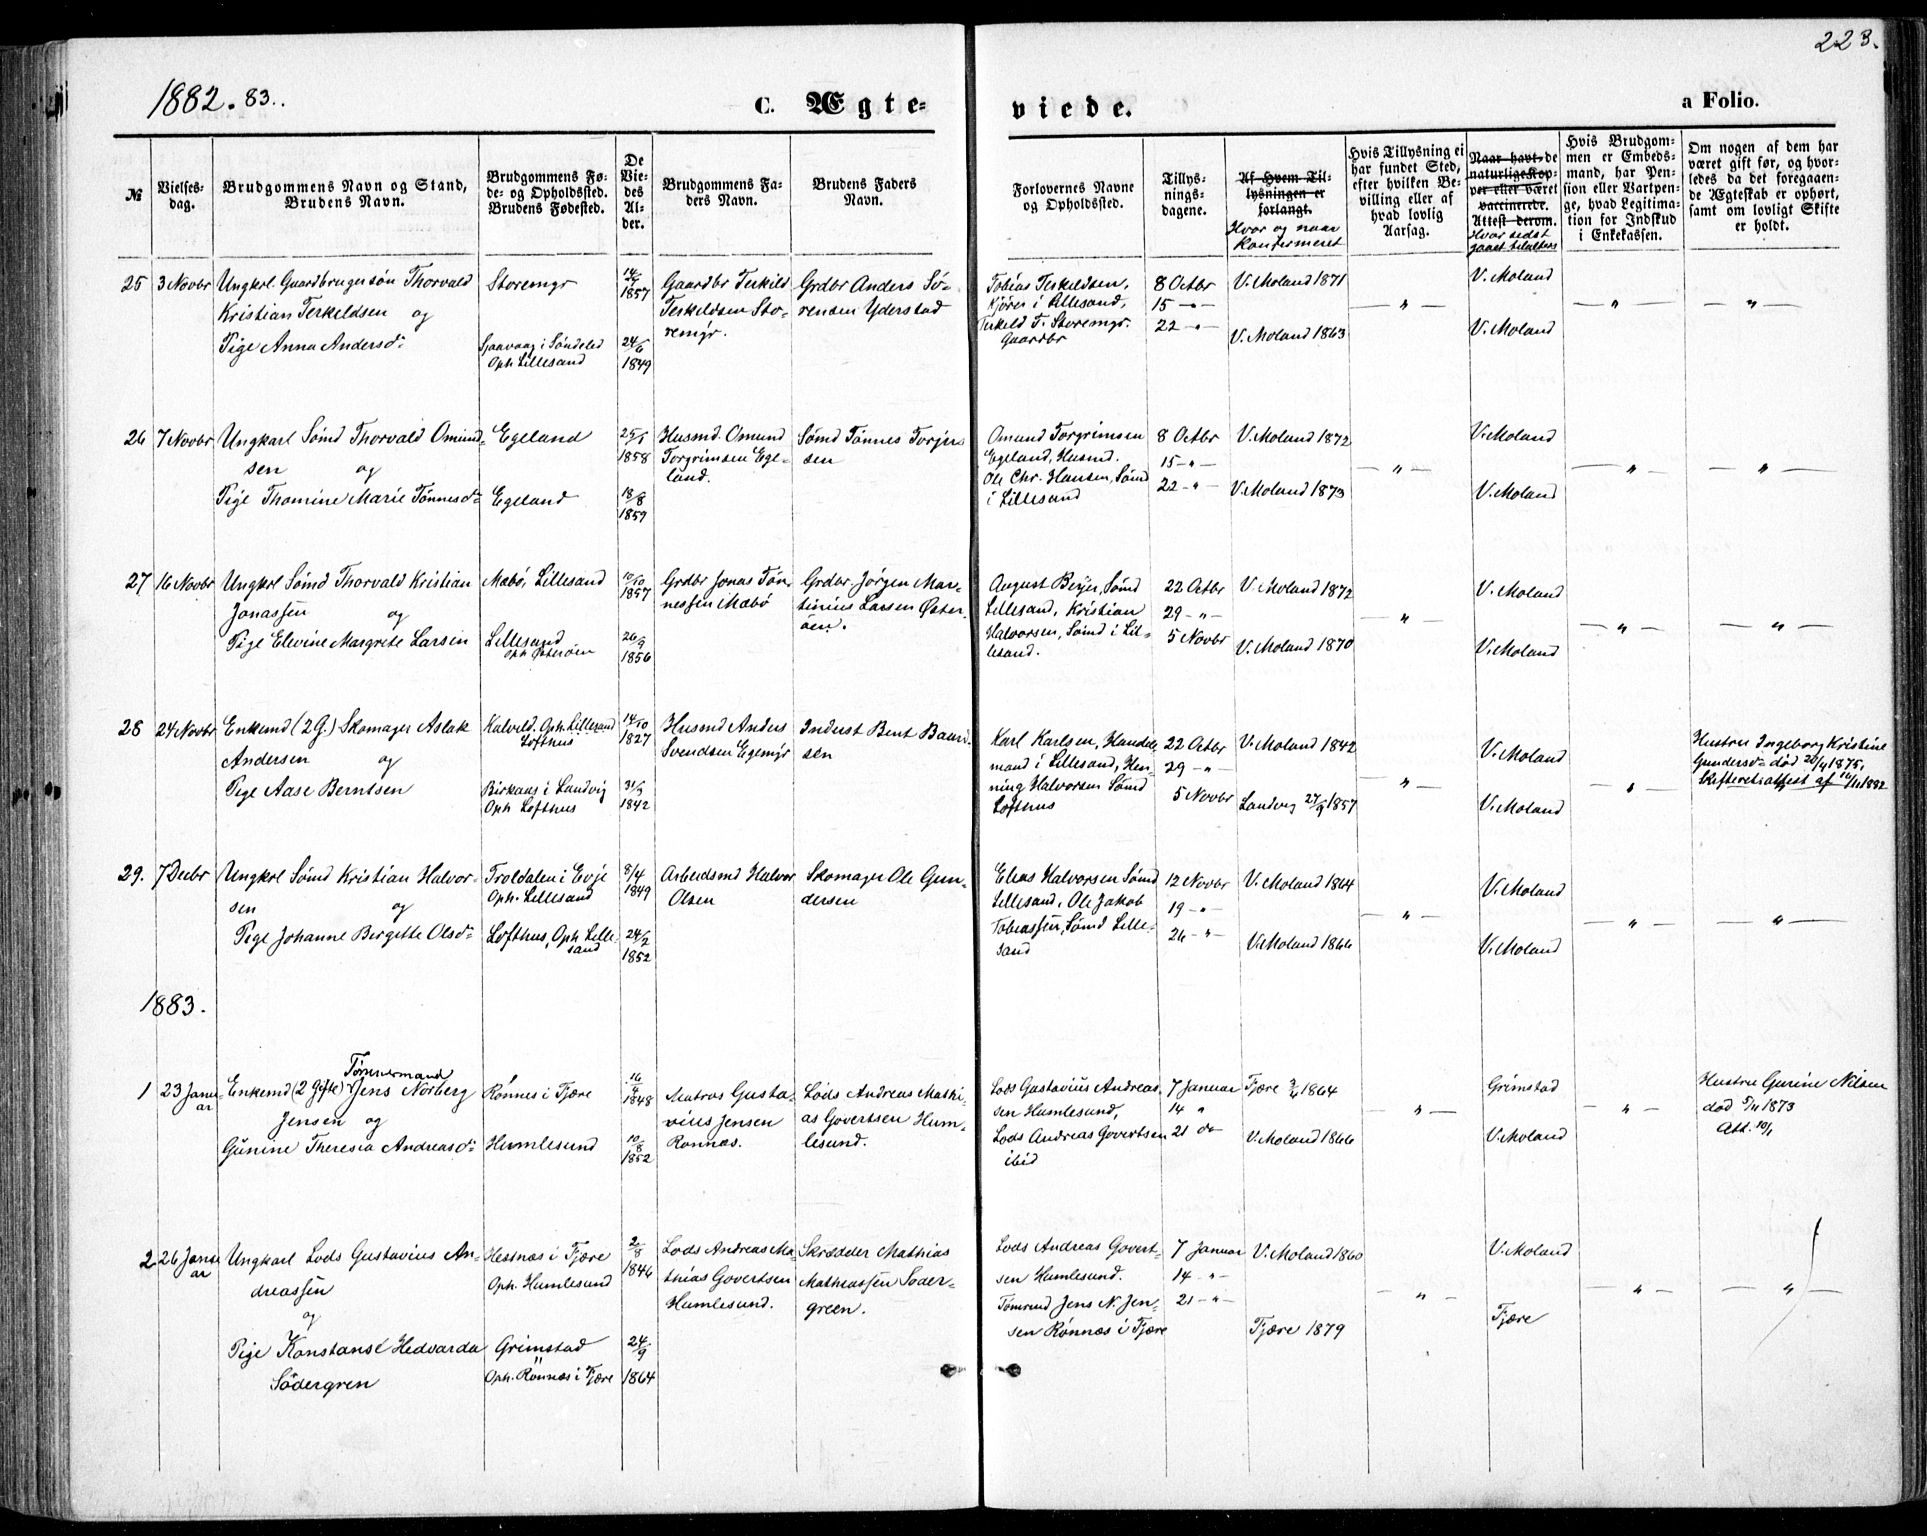 223.
1882. 83..
C. Ægte-
viede.
a Folio.
№
Vielses-
dag.
Brudgommens Navn og Stand,
Brudens Navn.
Brudgommens Fø-
de- og Opholdssted.
Brudens Fødested.
De
Vie-
des
Al-
der.
Brudgommens Fa-
ders Navn.
Brudens Faders
Navn.
Forlovernes Navne
og Opholdssted.
Tillys-
nings-
dagene.
Af Hvem Til-
lysningen er
forlangt.
Hvor og naar
Konfirmeret
Hvis Tillysning ei
har fundet Sted,
efter hvilken Be-
villing eller af
hvad lovlig
Aarsag.
Naar havt de
naturlige Kop-
per eller været
vaccinerede.
Attest derom.
Hvor sidst
gaaet tilalters
Hvis Brudgom-
men er Embeds-
mand, har Pen-
sion eller Vartpen-
ge, hvad Legitima-
tion for Indskud
i Enkekassen.
Om nogen af dem har
været gift før, og hvor-
ledes da det foregaaen-
de Ægteskab er ophørt,
samt om lovligt Skifte
er holdt.
25 3 Novbr Ungkrl. Gaardbrugersøn Thorvald
Kristian Terkildsen og
Pige Anna Andersd:
Storemyr
Sjaavaag i Søndeled
Oph. Lillesand
1857
24/6
1849
Gaardbr Terkild
Terkildsen Sto-
remyr.
Grdbr Anders Sø-
rensen Yderstad
Tobias Terkildsen,
Kjører i Lillesand,
Terkild T. Storemyr.
Gaardbr
8 Octbr
15 -"-
22 -"-
V. Moland 1871
V. Moland 1863
"
V. Moland
V. Moland
"
"
26 7 Novbr Ungkarl Sømd Thorvald Omund-
sen og
Pige Thomine Marie Tønnesd:
Egeland
Egeland
25/1
1858
18/8
1859
Husmd. Omund
Torgrimsen Ege-
land.
Sømd Tønnes Torjus-
sen
Omund Torgrimsen
Egeland, Husmd.
Ole Chr. Hansen, Sømd
i Lillesand
8 Octbr
15 -"-
22 -"-
V. Moland 1872
V. Moland 1873
"
V. Moland
V. Moland
"
"
27 16 Novbr Ungkrl Sømd Thorvald Kristian
Jonassen og
Pige Elevine Margrete Larsen
Mæbø, Lillesand
Lillesand
Oph. Østerøen
10/10
1857
26/9
1856
Grdbr Jonas Tøn-
nessen Mæbø
Grdbr. Jørgen Mar-
tinius Larsen Øster-
øen.
August Beyer, Sømd
Lillesand, Kristian
Halvorsen, Sømd i Lil-
lesand.
22 Octbr
29 -"-
5 Novbr
V. Moland 1872
V. Moland 1870
"
V. Moland
V. Moland
"
"
28 24 Novbr Enkemd (2 G.) Skomager Aslak
Andersen og
Pige Aase Berntsen
Kalveld. Oph. Lillesand
Lofthus
Birkaas i Landvig
Oph Lofthus
14/10
1827
1842
Husmd Anders
Svendsen Egemyr
Inderst Bent
sen
Karl Karlsen, Handels-
mand i Lillesand, Hen-
ning Halvorsen Sømd
Lofthus
22 Octbr
29 -"-
5 Novbr
V. Moland 1842
Landvig 27/9 1857
"
V. Moland
V. Moland
"
Hustru Ingeborg Kristine
Gundersd: død 1875,
Skifteretsattest af 1882
29. 7 Decbr Ungkrl Sømd Kristian Halvor-
sen og
Pige Johanne Birgitte Olsd:
Troldalen i Evje
Oph. Lillesand
Lofthus, Oph Lille-
sand
8/4
1849
24/2
1852
Arbeidsmd Halvor
Olsen
Skomager Ole Gun-
dersen
Elias Halvorsen Sømd
Lillesand, Ole Jakob
Tobiassen, Sømd Lille-
sand
12 Novbr
19 -"-
26 -"-
V. Moland 1864
V. Moland 1866
"
V. Moland
V. Moland
"
"
1883.
1 23 Janu-
ar
Tømmermand
Enkemd (2 Gifte) Jens Norberg
Jensen og
Gunine Theresia Andreasd:
Rønnes i Fjære
Humlesund
16/4
1848
10/8
1852
Matros Gusta-
vius Jensen
Rønnæs.
Lods Andreas Mathi-
as Govertsen Hum-
lesund.
Lods Gustavius Andreas-
sen Humlesund,
Lods Andreas Govertsen
ibid
7 Januar
14 "
21 do
Fjære 1864
V. Moland 1866
"
Grimstad
V. Moland
"
Hustru Gurine Nilsen
død 5/11 1873
Att. 10/1
2 26 Janu-
ar
Ungkarl Lods Gustavius An-
dreassen
og
Pige Konstanse Hedvarda
Södergren
Hestnæs i Fjære
Oph. Humlesund
Grimstad
Oph. Rønnæs i Fjære
2/8
1846
24/9
1864
Lods Andreas Ma-
thias Govertsen
Humlesund.
Skrædder Mathias
Mathiassen Söder-
green.
Lods Andreas Govert-
sen Humlesund.
Tømrmd Jens N. Jen-
sen Rønnæs i Fjære
7 Januar
14 -"-
21 -"-
V. Moland 1860
Fjære 1879
"
V. Moland
Fjære
"
"